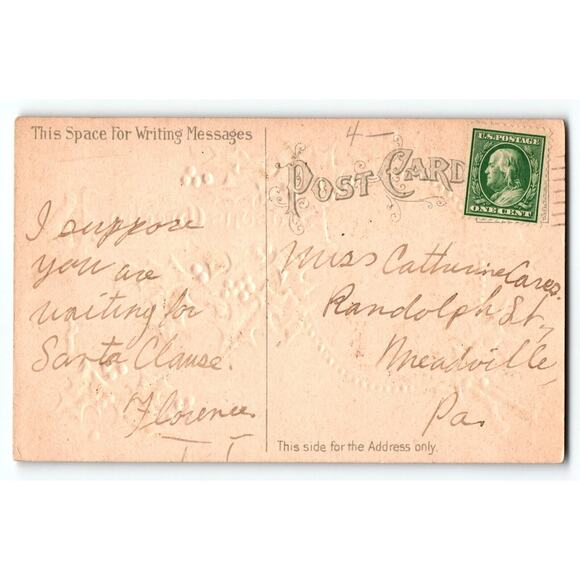 This Space For Writing Messages
4 –
POST CARD
U.S. POSTAGE
ONE CENT
I suppose
you are
waiting for
Santa Clause.
Florence
Miss Catherine Cares.
Randolph St.,
Meadville,
Pa.
This side for the Address only.